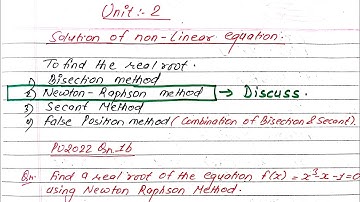 Unit:- 2
Solution of non-Linear equation.
To find the real root.
1) Bisection method
2) Newton-Raphson method → Discuss.
3) Secant Method
4) False Position method (Combination of Bisection & Secant).
PU2022 Qn.1b
Qn. Find a real root of the equation f(x) = x³-x-1=0
using Newton Raphson Method.